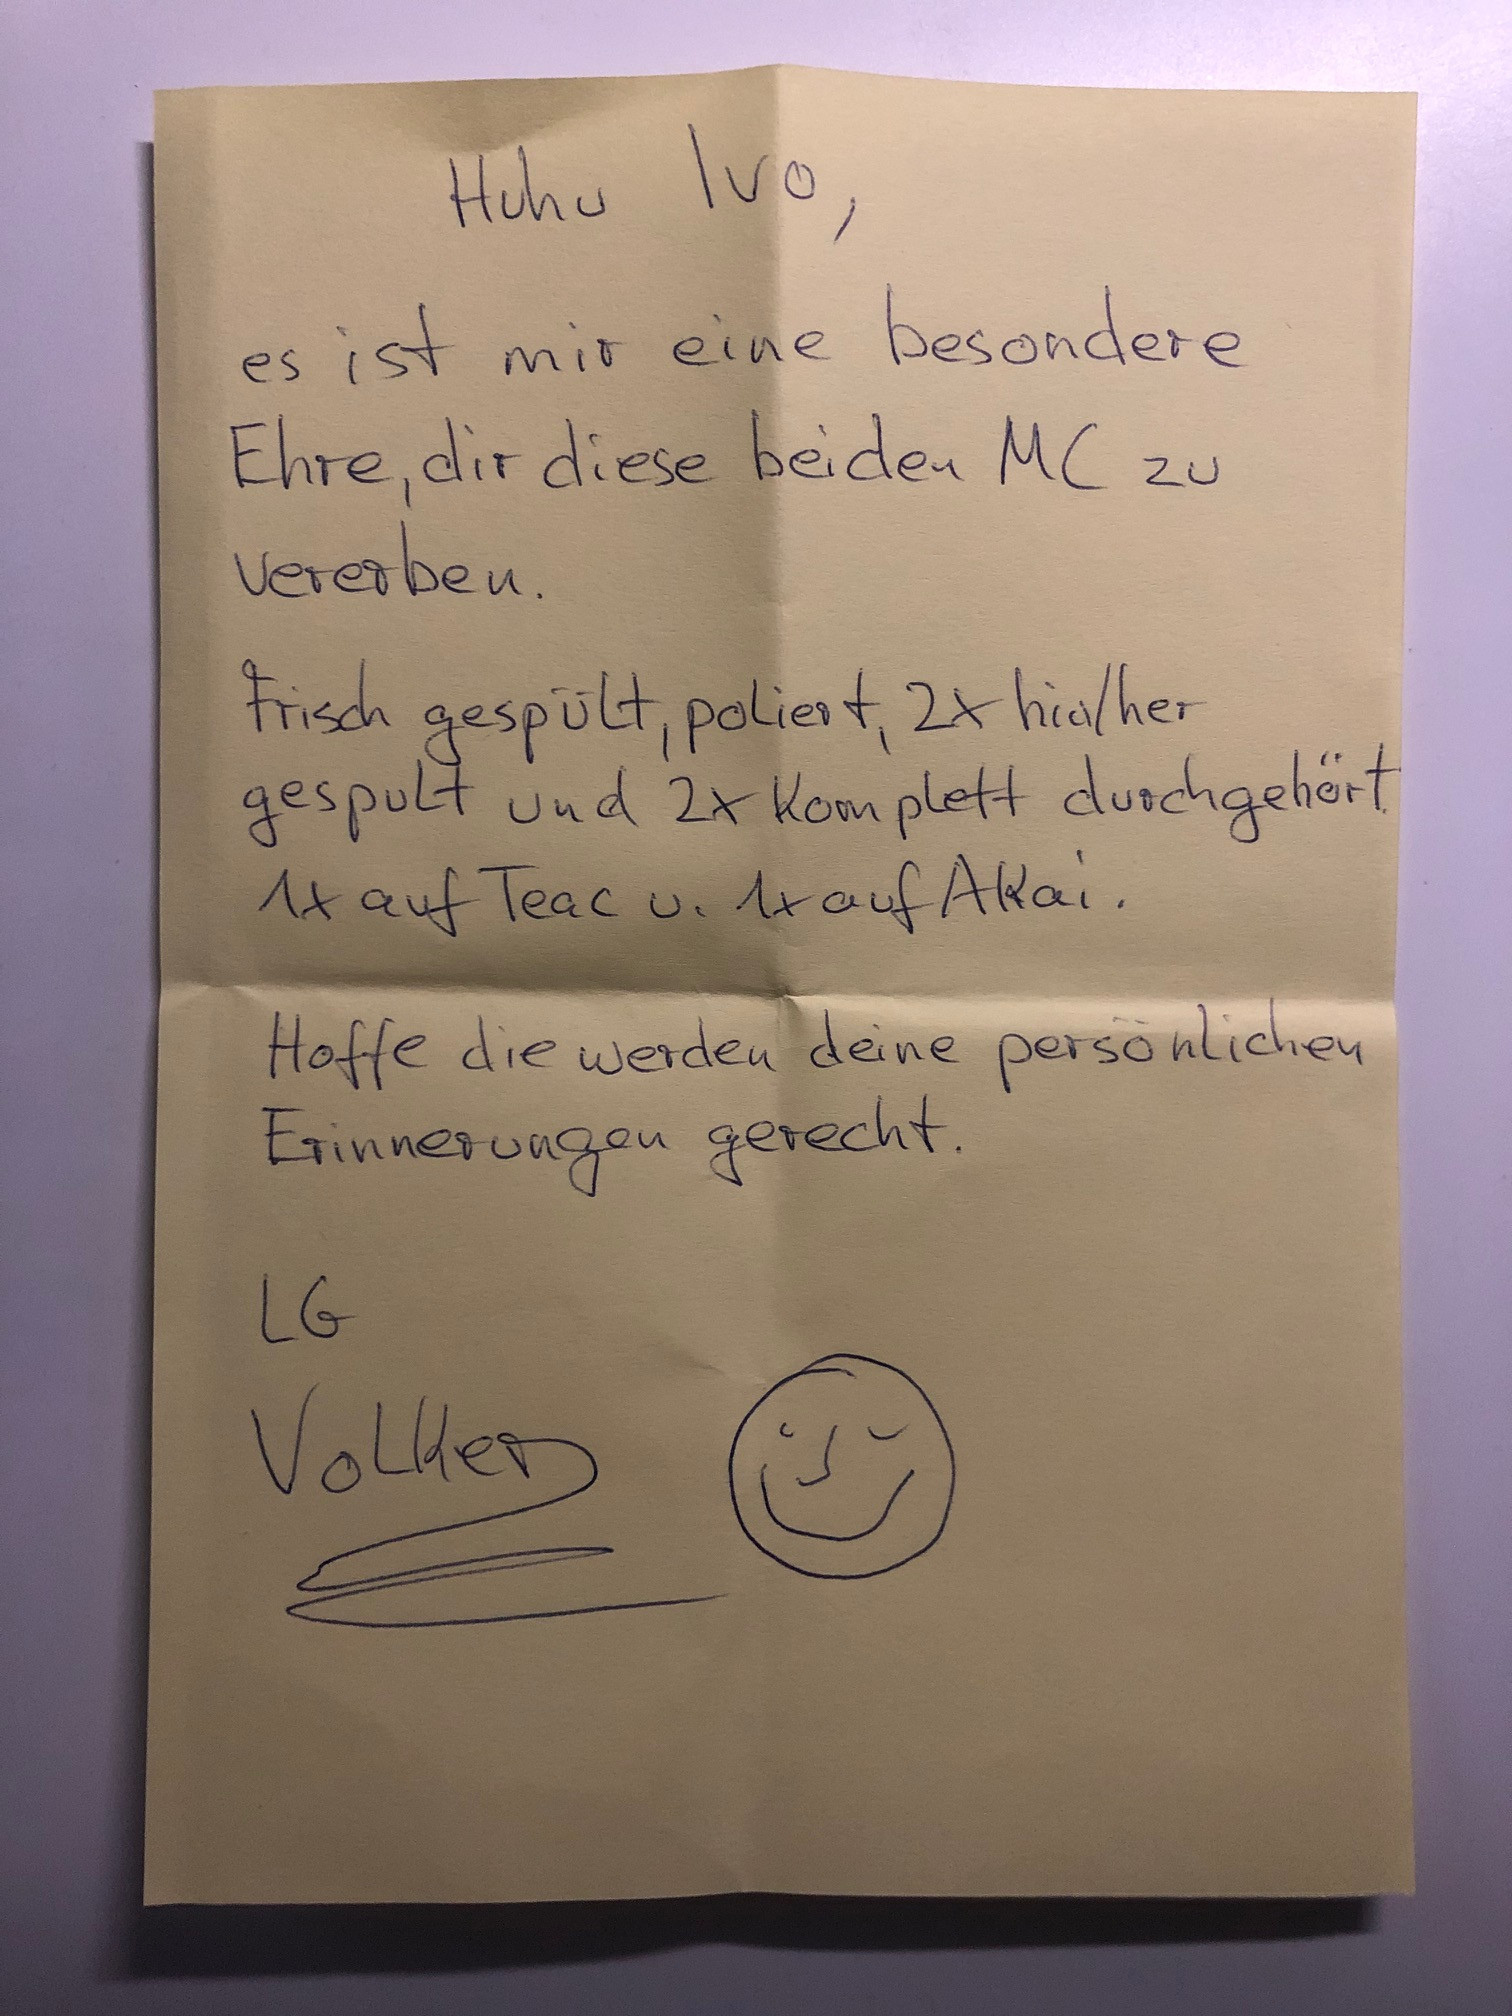 Huhu Ivo,
es ist mir eine besondere
Ehre, dir diese beiden MC zu
vererben.
Frisch gespült, poliert, 2x hin/her
gespult und 2x komplett durchgehört.
1x auf Teac u. 1x auf Akai.
Hoffe die werden deine persönlichen
Erinnerungen gerecht.
LG
Volker